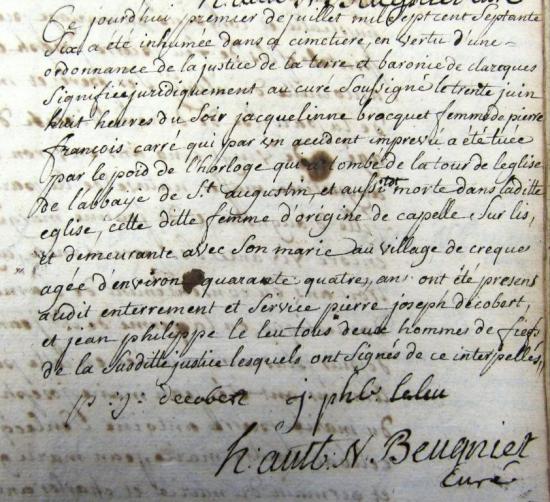 Ce jourd'hui premier de juillet mil sept cent septante
six a été inhumée dans ce cimetière, en vertu d'une
ordonnance de la justice de la terre et baronie de clarques
signifiée juridiquement au curé soussigné le trente juin
huit heures du soir jacquelinne bracquet femme de pierre
françois carré qui par un accident imprevû a été tuée
par le poid de l'horloge qui a tombé de la tour de leglise
de l'abbaye de St. augustin, et aussitot morte dans laditte
eglise, cette ditte femme d'origine de capelle sur lis,
et demeurante avec son marie au village de creques
agée d'environ quarante quatres, ans ont été present
audit enterrement et service pierre joseph decobert,
et jean philippe le leu tous deux hommes de fiefs
de la sudditte justice lesquels ont signés de ce interpellés,,
p. j. decobert j. phle leleu
h. ault. N. Beugniet
Curé